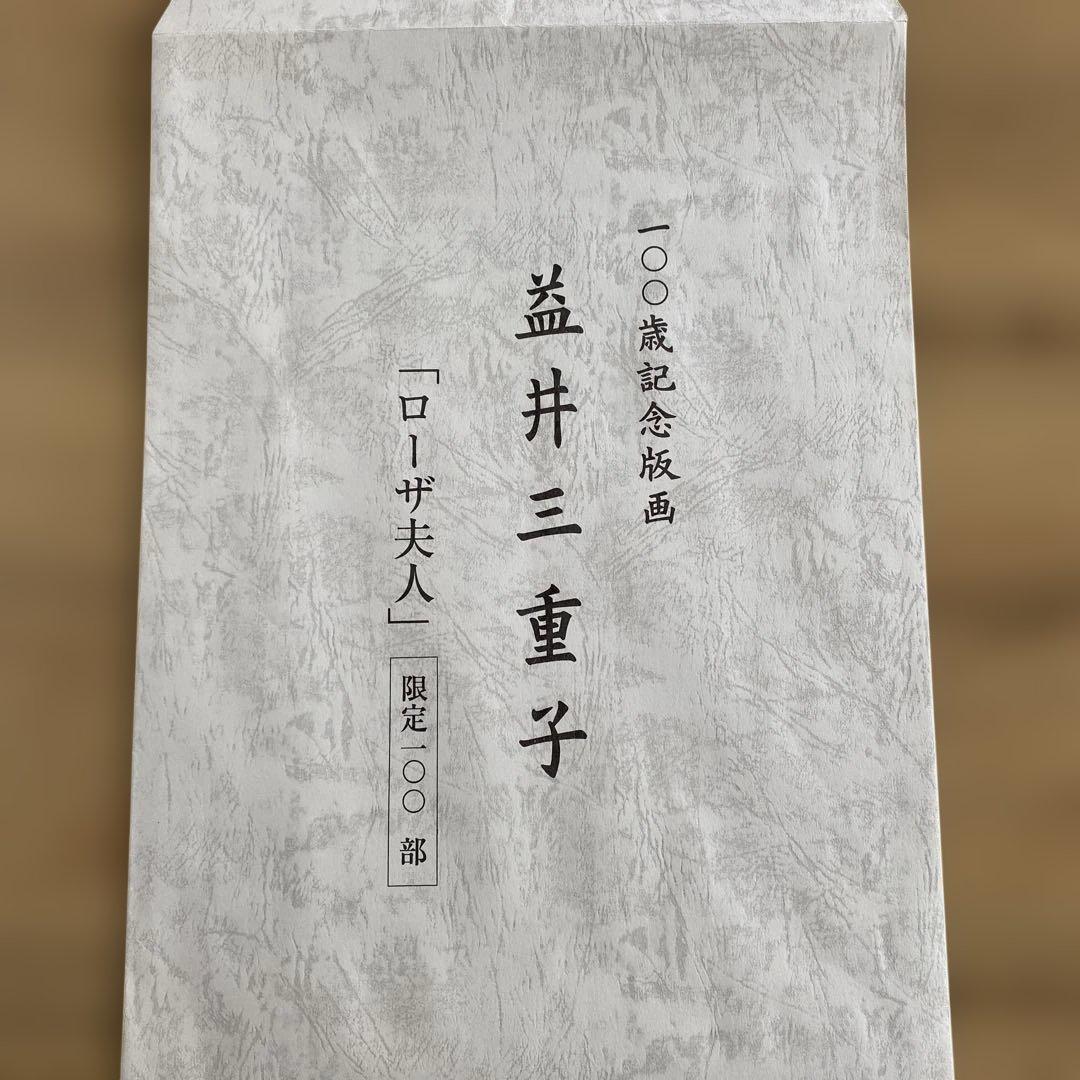 一〇〇歳記念版画
益井三重子
「ローザ夫人」 限定一〇〇部